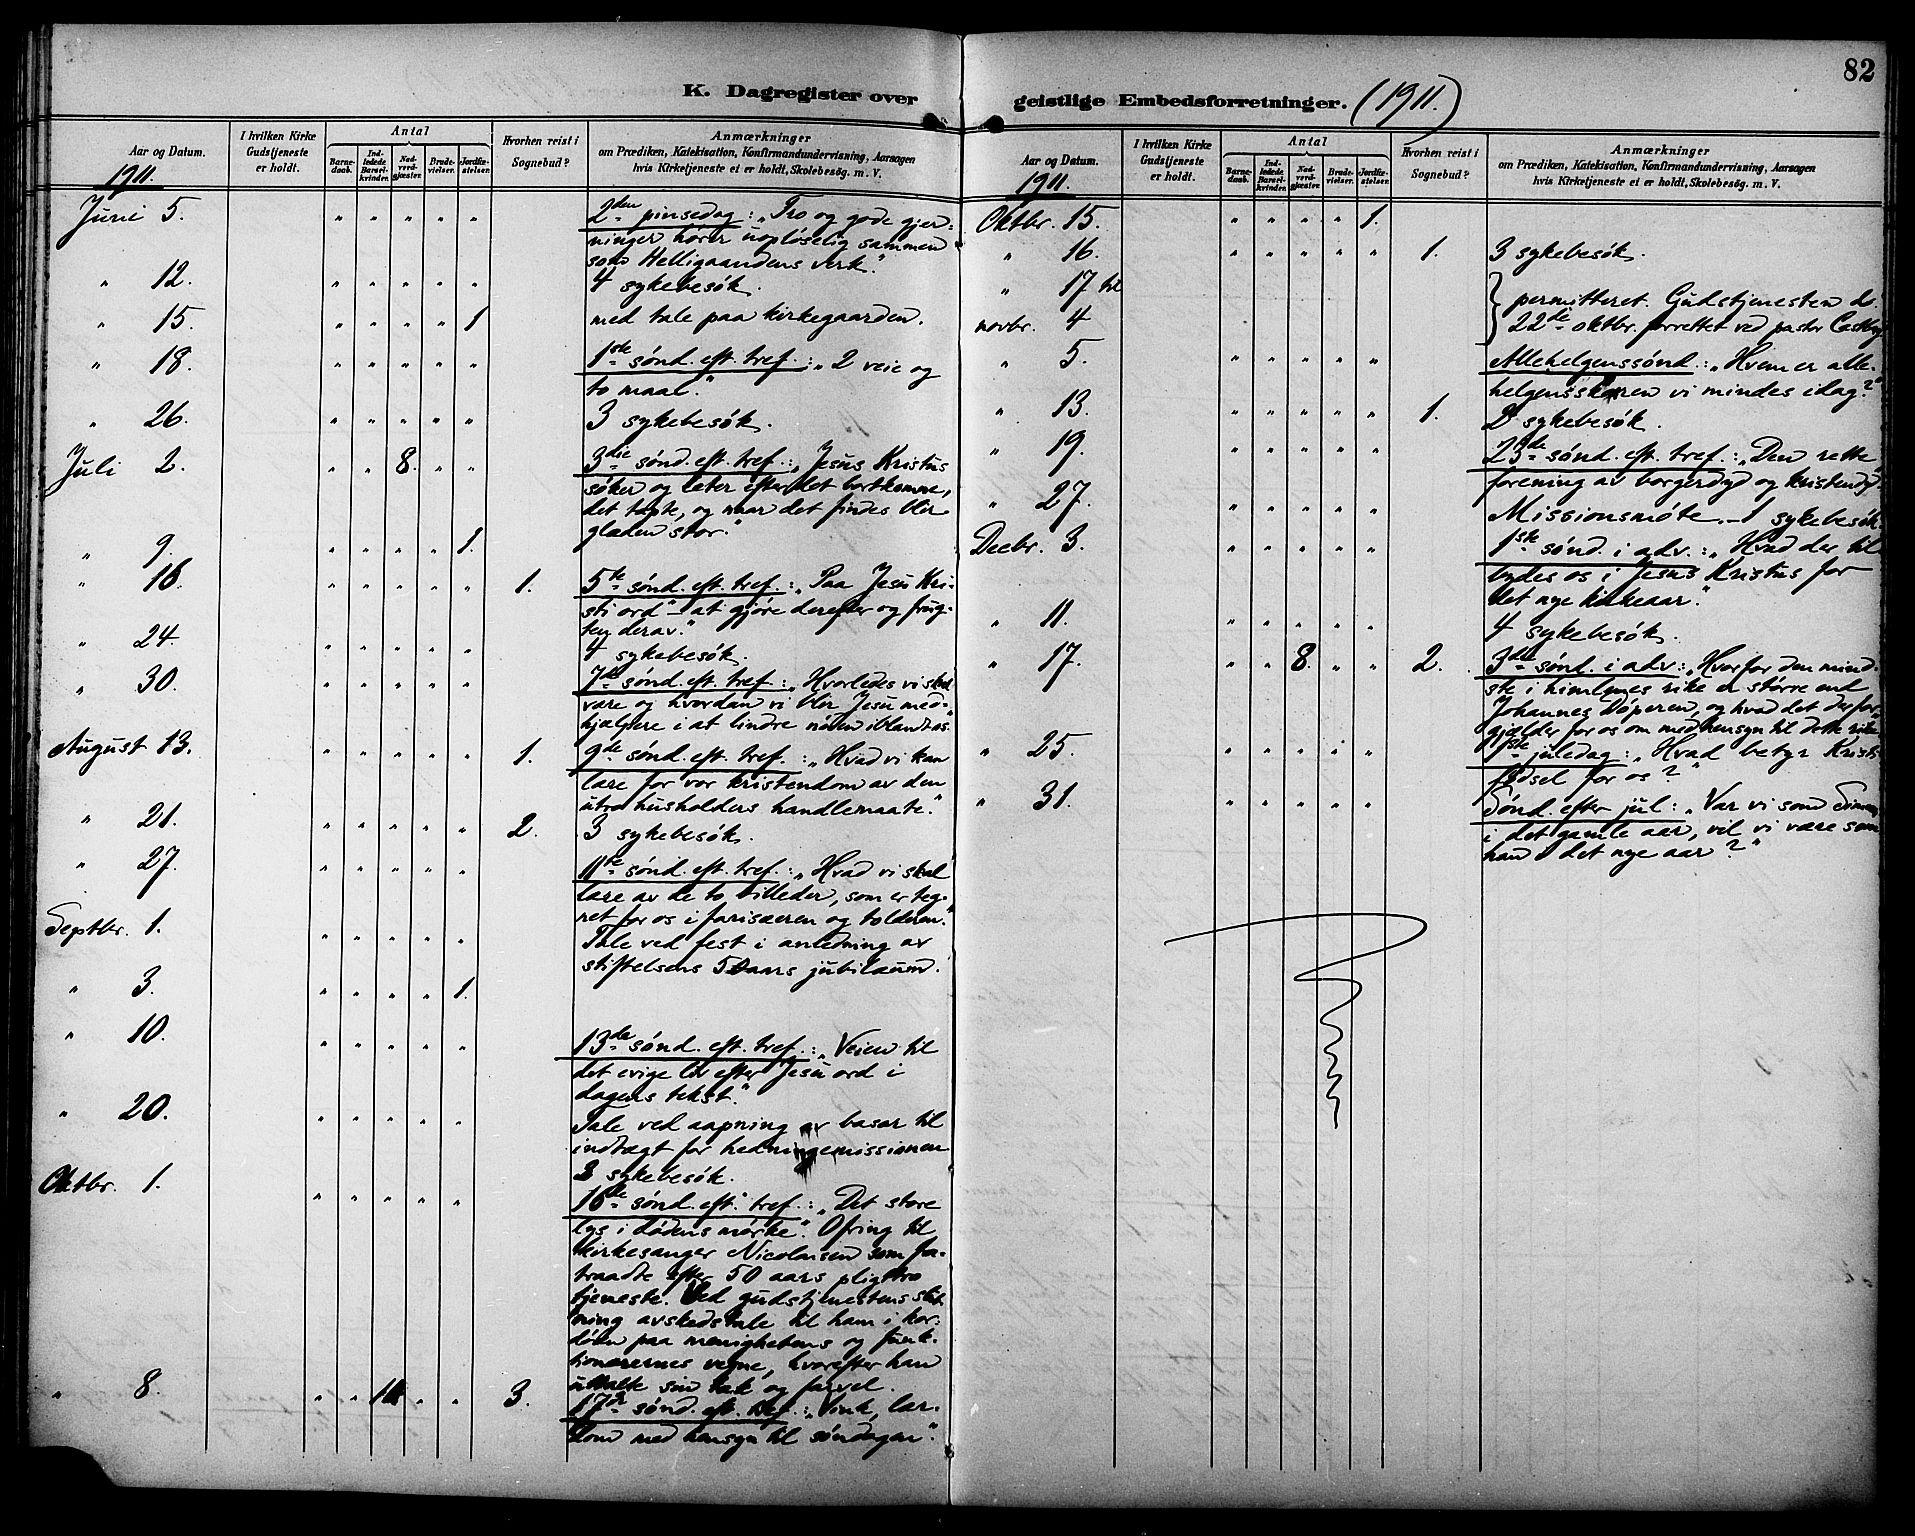 82
K. Dagregister over geistlige Embedsforretninger. (1911.)
Aar og Datum.
I hvilken Kirke Gudstjeneste er holdt.
Antal
Barnedaab.
Indledede Barselkvinder.
Nadverdgjæster.
Brudevielser.
Jordfæstelser.
Hvorhen reist i Sognebud?
Anmærkninger
om Prædiken, Katekisation, Konfirmandundervisning, Aarsagen
hvis Kirketjeneste et er holdt, Skolebesøg. m. V.
1911.
Juni 5. " " " " " 2den pinsedag: „Tro og gode gjer-
ninger hører uopløselig sammen
som Helligaandens verk."
" 12. " " " " " 4 sykebesök.
" 15. " " " " 1 med tale paa kirkegaarden.
" 18. " " " " " 1ste sønd. eft. tref.: „2 veie og
to maal."
" 26. " " " " " 3 sykebesök.
Juli 2. " " 8. " " 3die sønd. eft. tref.: „Jesus Kristus
søker og leter efter det bortkomne,
det tapte, og naar det findes blir
glæden stor."
" 9. " " " " 1.
" 16. " " " " " 1. 5te sønd. eft. tref.: „Paa Jesu Kri-
sti ord" – at gjøre derefter og frug-
ten derav."
" 24. " " " " " 4 sykebesök.
" 30. " " " " " 7de sønd. eft. tref.: „Hvorledes vi skal
være og hvordan vi blir Jesu med-
hjælpere i at lindre nøden iblandt os."
August 13. " " " " " 1. 9de sønd. eft. tref.: „Hvad vi kan
lære for vor kristendom av den
utro husholders handlemaate."
" 21. " " " " " 2. 3 sykebesök.
" 27. " " " " " 11te sønd. eft. tref.: „Hvad vi skal
lære av de to billeder, som er teg-
net for os i farisæeren og tolderen."
Septbr. 1. " " " " " Tale ved fest i anledning av
stiftelsens 50 aars jubilæum.
" 3. " " " " 1.
" 10. " " " " " 13de sønd. eft. tref.: „Veien til
det evige liv efter Jesu ord i
dagens tekst."
" 20. " " " " " Tale ved aapning av basar til
indtægt for hedningemissionen
3 sykebesök.
Oktbr. 1. " " " " " 16de sønd. eft. tref.: „Det store
lys i dødens mørke." Ofring til
kirkesanger Nicolaisen som fra-
traadte efter 50 aars pligttro
tjeneste. Ved gudstjenestens slut-
ning avskedstale til ham i kor-
døren paa menighetens og funk-
tionærernes vegne, hvorefter han
uttalte sin tak og farvel.
" 8. " " " " 3. 17de sønd. eft. tref.: „Vink, lær-
dom med hensyn til søndagen."
Aar og Datum.
I hvilken Kirke Gudstjeneste er holdt.
Antal
Barnedaab.
Indledede Barselkvinder.
Nadverdgjæster.
Brudevielser.
Jordfæstelser.
Hvorhen reist i Sognebud?
Anmærkninger
om Prædiken, Katekisation, Konfirmandundervisning, Aarsagen
hvis Kirketjeneste et er holdt, Skolebesög. m. V.
1911.
Oktbr. 15. " " " " 1.
" 16. " " " " " 1. 3 sykebesök.
" 17 til
novbr. 4 permitteret. Gudstjenesten d.
22de oktbr. forrettet ved pastor Castberg
" 5. " " " " " Allehelgenssønd.: „Hvem er alle-
helgensskaren vi mindes idag?"
" 13. " " " " " 1. 2 sykebesök.
" 19. " " " " " 23de sønd. eft. tref.: „Den rette
forening av borgerdyd og kristendyd."
" 27. " " " " " Missionsmøte. – 1 sykebesök.
Decbr. 3. " " " " " 1ste sønd. i adv.: „Hvad der til
bydes os i Jesus Kristus for
det nye kirkeaar."
" 11. " " " " " 4 sykebesök.
" 17. " " 8. " " 2. 3die sønd. i adv.: „Hvorfor den mind-
ste i himlenes rike er større end
Johannes Døperen, og hvad det derfor
gjælder for os om med hensyn til dette rike."
" 25. " " " " " 1ste juledag: „Hvad betyr Kristi
fødsel for os?"
" 31. " " " " " Sønd. efter jul: „Var vi som Simeon
i det gamle aar, vil vi være som
han i det nye aar?"